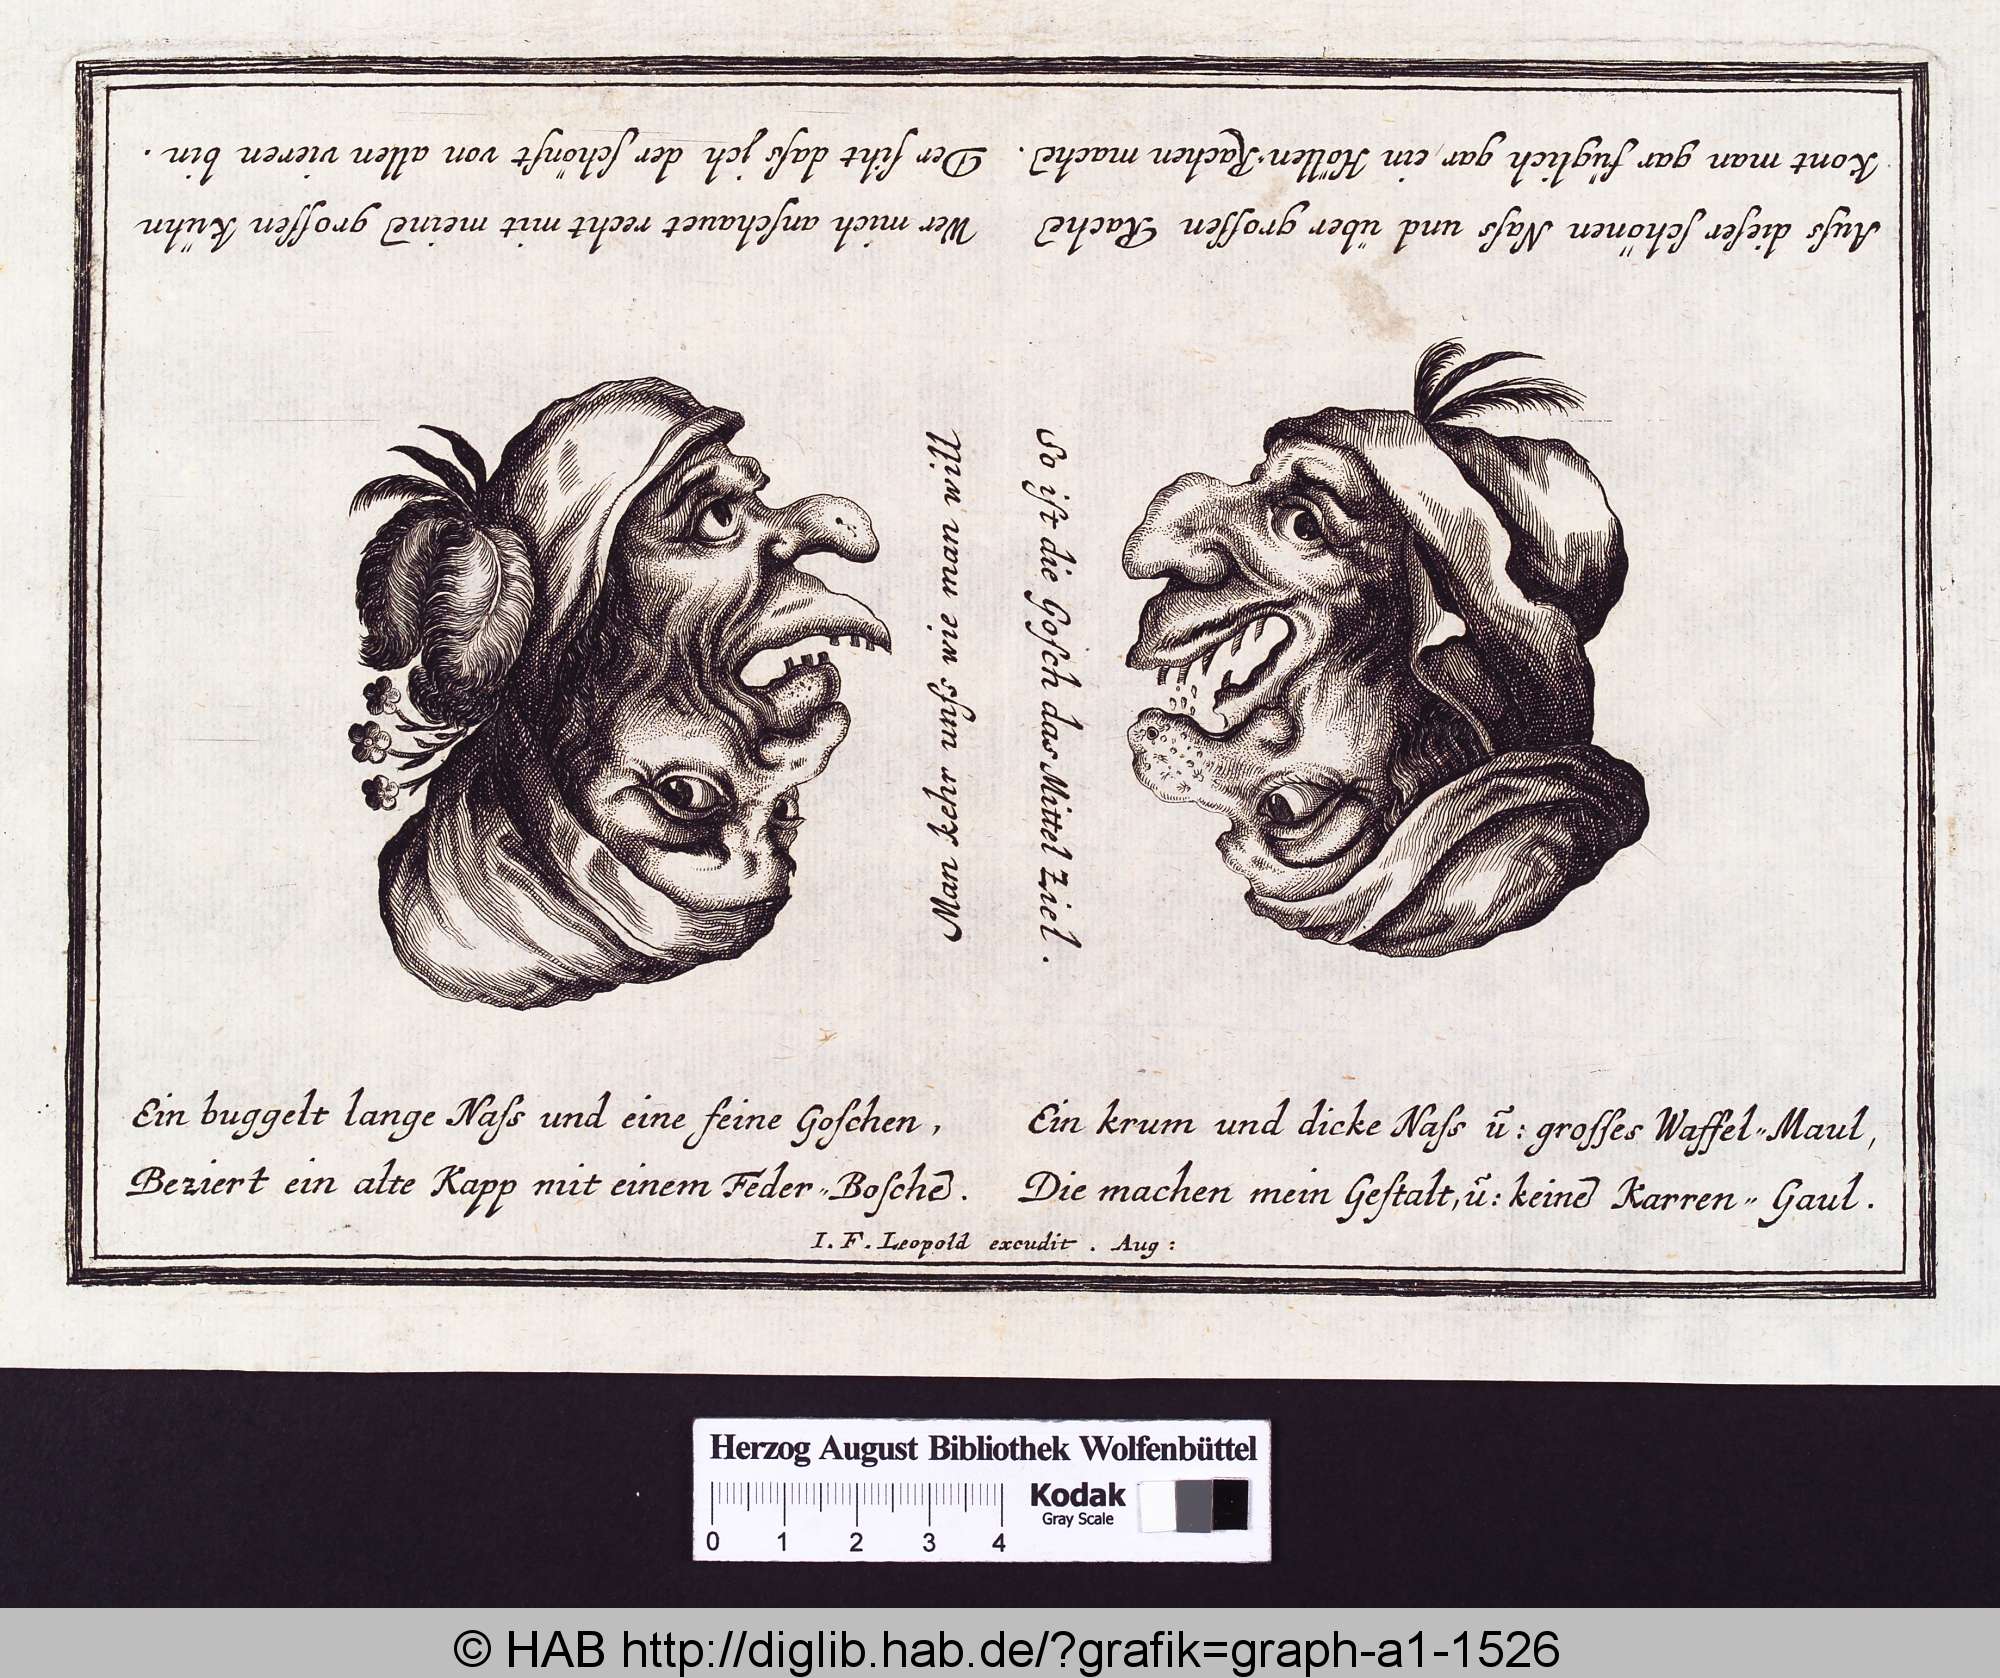 Wer mich anſchauet recht mit meinē groſſen Kühn
Der ſiht daſs jch der ſchönſt von allen vieren bin.
Auſs dieſer ſchönen Naſs und über groſſen Rachē
Kont man gar füglich gar, ein Höllen-Rachen machē.
Man kehr unſs wie man will
So iſt die Goſch das Mittel Ziel.
Ein buggelt lange Naſs und eine feine Goſchen,
Beziert ein alte Kapp mit einem Feder-Boſchē.
Ein krum und dicke Naſs ū: groſſes Waffel-Maul,
Die machen mein Geſtalt, ū: keinē Karren-Gaul.
I. F. Leopold excudit. Aug:
Herzog August Bibliothek Wolfenbüttel
Kodak
Gray Scale
0 1 2 3 4
© HAB http://diglib.hab.de/?grafik=graph-a1-1526